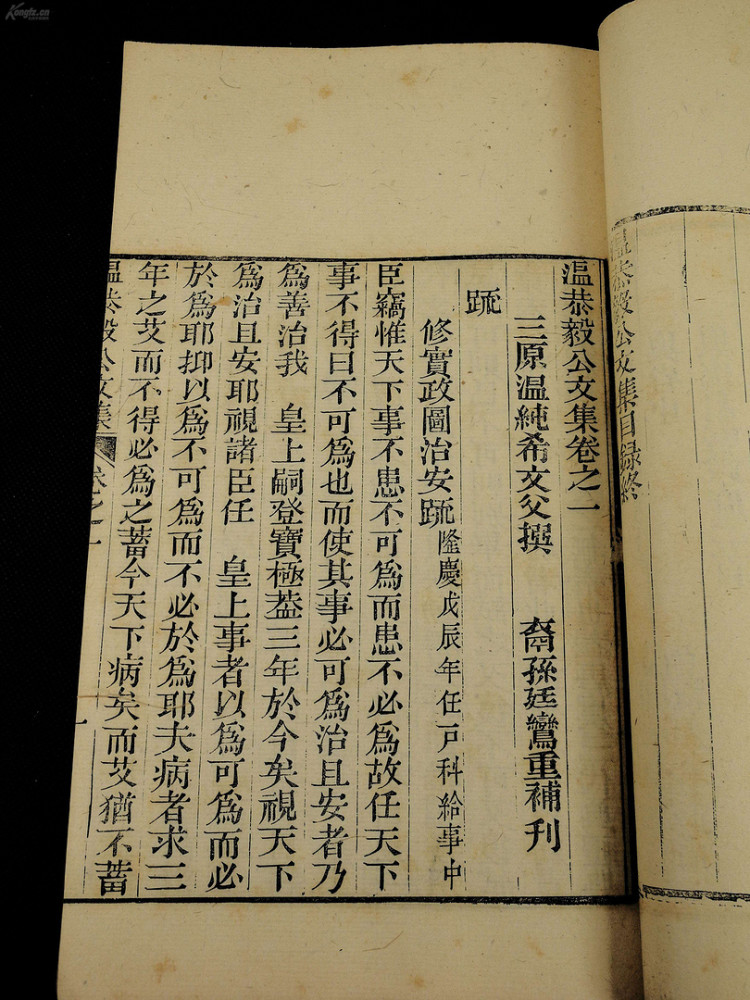 溫恭毅公文集目録終
温恭毅公文集卷之一
三原温純希文父撰　裔孫廷鸞重補刊
疏
修實政圖治安疏 隆慶戊辰年任戸科給事中
臣竊惟天下事不患不可爲而患不必爲故任天下
事不得曰不可爲也而使其事必可爲治且安者乃
爲善治我　皇上嗣登寶極葢三年於今矣視天下
爲治且安耶視諸臣任　皇上事者以爲可爲而必
於爲耶抑以爲不可爲而不必於爲耶夫病者求三
年之艾而不得必爲之蓄今天下病矣而艾猶不蓄
温恭毅公文集 卷之一 一
Kongfz.cn